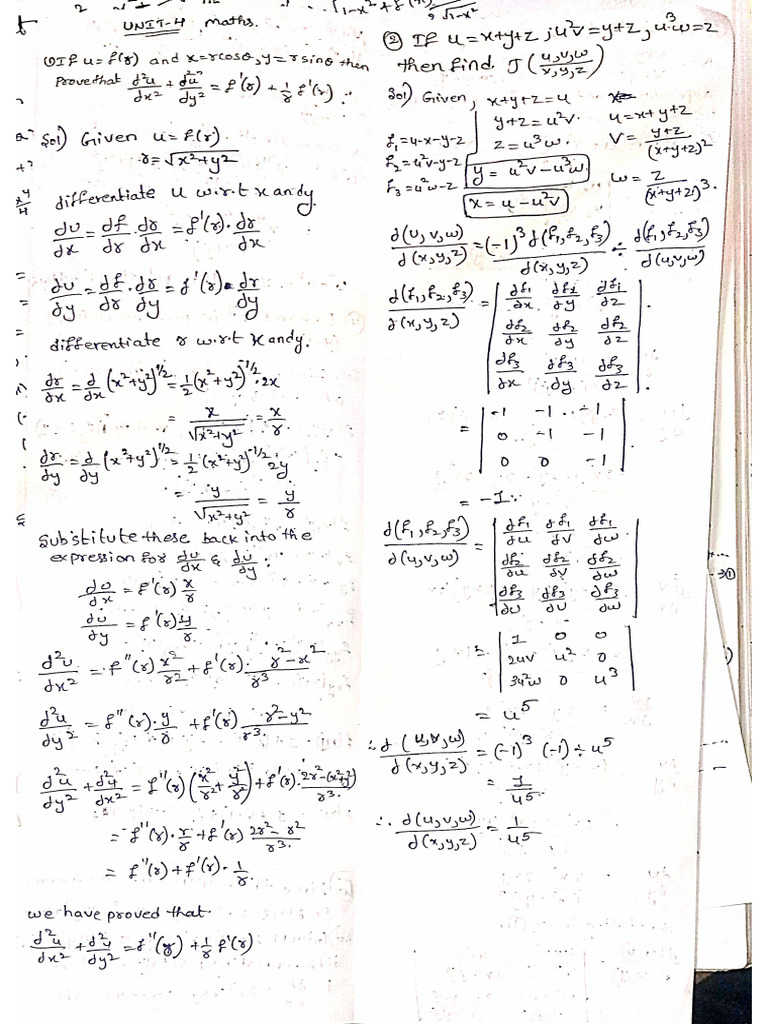 UNIT-4 maths.
① If u = f(r) and x=rcosθ, y=rsinθ then
Prove that d²u/dx² + d²u/dy² = f'(r) + 1/r f'(r).
Sol) Given u = f(r)
r = √x²+y²
differentiate u w.r.t x and y.
du/dx = df/dr · dr/dx = f'(r) · dr/dx
du/dy = df/dr · dr/dy = f'(r) · dr/dy
differentiate r w.r.t x and y.
dr/dx = d/dx (x²+y²)^1/2 = 1/2 (x²+y²)^-1/2 · 2x
= x/√x²+y² = x/r
dr/dy = d/dy (x²+y²)^1/2 = 1/2 (x²+y²)^-1/2 2y
= y/√x²+y² = y/r
Substitute these back into the
expression for du/dx & du/dy :
du/dx = f'(r) x/r
du/dy = f'(r) y/r
d²u/dx² = f''(r) x²/r² + f'(r) · r²-x²/r³
d²u/dy² = f''(r) · y/r + f'(r) r²-y²/r³.
d²u/dy² + d²u/dx² = f''(r) (x²/r² + y²/r²) + f'(r) · 2r²-(x²+y²)/r³.
= f''(r) · r/r + f'(r) 2r²-r²/r³.
= f''(r) + f'(r) · 1/r.
we have proved that
d²u/dx² + d²u/dy² = f''(r) + 1/r f'(r)
② If u=x+y+z, u²v=y+z, u³w=z
then find J(u,v,w/x,y,z)
Sol) Given, x+y+z=u
y+z=u²v.
z=u³w.
y = u²v-u³w.
x = u-u²v
f₁=u-x-y-z
f₂=u²v-y-z
f₃=u³w-z
u=x+y+z
v= y+z/(x+y+z)²
w= z/(x+y+z)³.
∂(u,v,w)/∂(x,y,z) = (-1)³ ∂(f₁,f₂,f₃)/∂(x,y,z) ÷ ∂(f₁,f₂,f₃)/∂(u,v,w)
∂(f₁,f₂,f₃)/∂(x,y,z) = | ∂f₁/∂x ∂f₁/∂y ∂f₁/∂z |
| ∂f₂/∂x ∂f₂/∂y ∂f₂/∂z |
| ∂f₃/∂x ∂f₃/∂y ∂f₃/∂z |
= | -1 -1 -1 |
| 0 -1 -1 |
| 0 0 -1 |
= -1.
∂(f₁,f₂,f₃)/∂(u,v,w) = | ∂f₁/∂u ∂f₁/∂v ∂f₁/∂w |
| ∂f₂/∂u ∂f₂/∂v ∂f₂/∂w |
| ∂f₃/∂u ∂f₃/∂v ∂f₃/∂w |
= | 1 0 0 |
| 2uv u² 0 |
| 3u²w 0 u³ |
= u⁵
∴ ∂(u,v,w)/∂(x,y,z) = (-1)³ (-1) ÷ u⁵
= 1/u⁵.
∴ ∂(u,v,w)/∂(x,y,z) = 1/u⁵